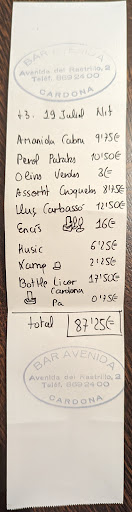 BAR AVENIDA
Avenida del Rastrillo, 2
Telf. 869 24 00
CARDONA
t3. 19 Juliol Nit
Amanida Cabra 9'75€
Penol Patates 10'50€
Olives Verdes 3€
Assortit Croquetes 8'75€
Lluç Carbassó 12'50€
16€
6'25€
2'25€
Botlle Licor Cardona 17'50€
Pa 0'75€
total 87'25€
BAR AVENIDA
Avenida del Rastrillo, 2
Telf. 869 24 00
CARDONA